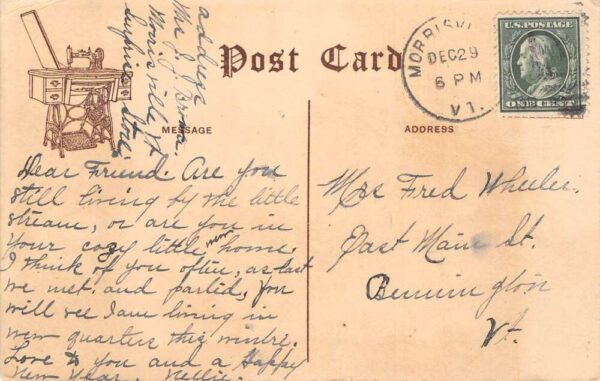 Post Card
MORRISVI
DEC 29
6 PM
VT.
U.S. POSTAGE
ONE CENT
MESSAGE
ADDRESS
address
Mr. J. J.
Morrisville Vt
Dear Friend. Are you
still living by the little
stream, or are you in
your cozy little new home.
I think of you often, as last
we met and parted, you
will see I am living in
new quarters this wintre.
Love to you and a Happy
New Year. Nellie.
Mrs Fred Wheeler.
East Main St.
Bennington
Vt.